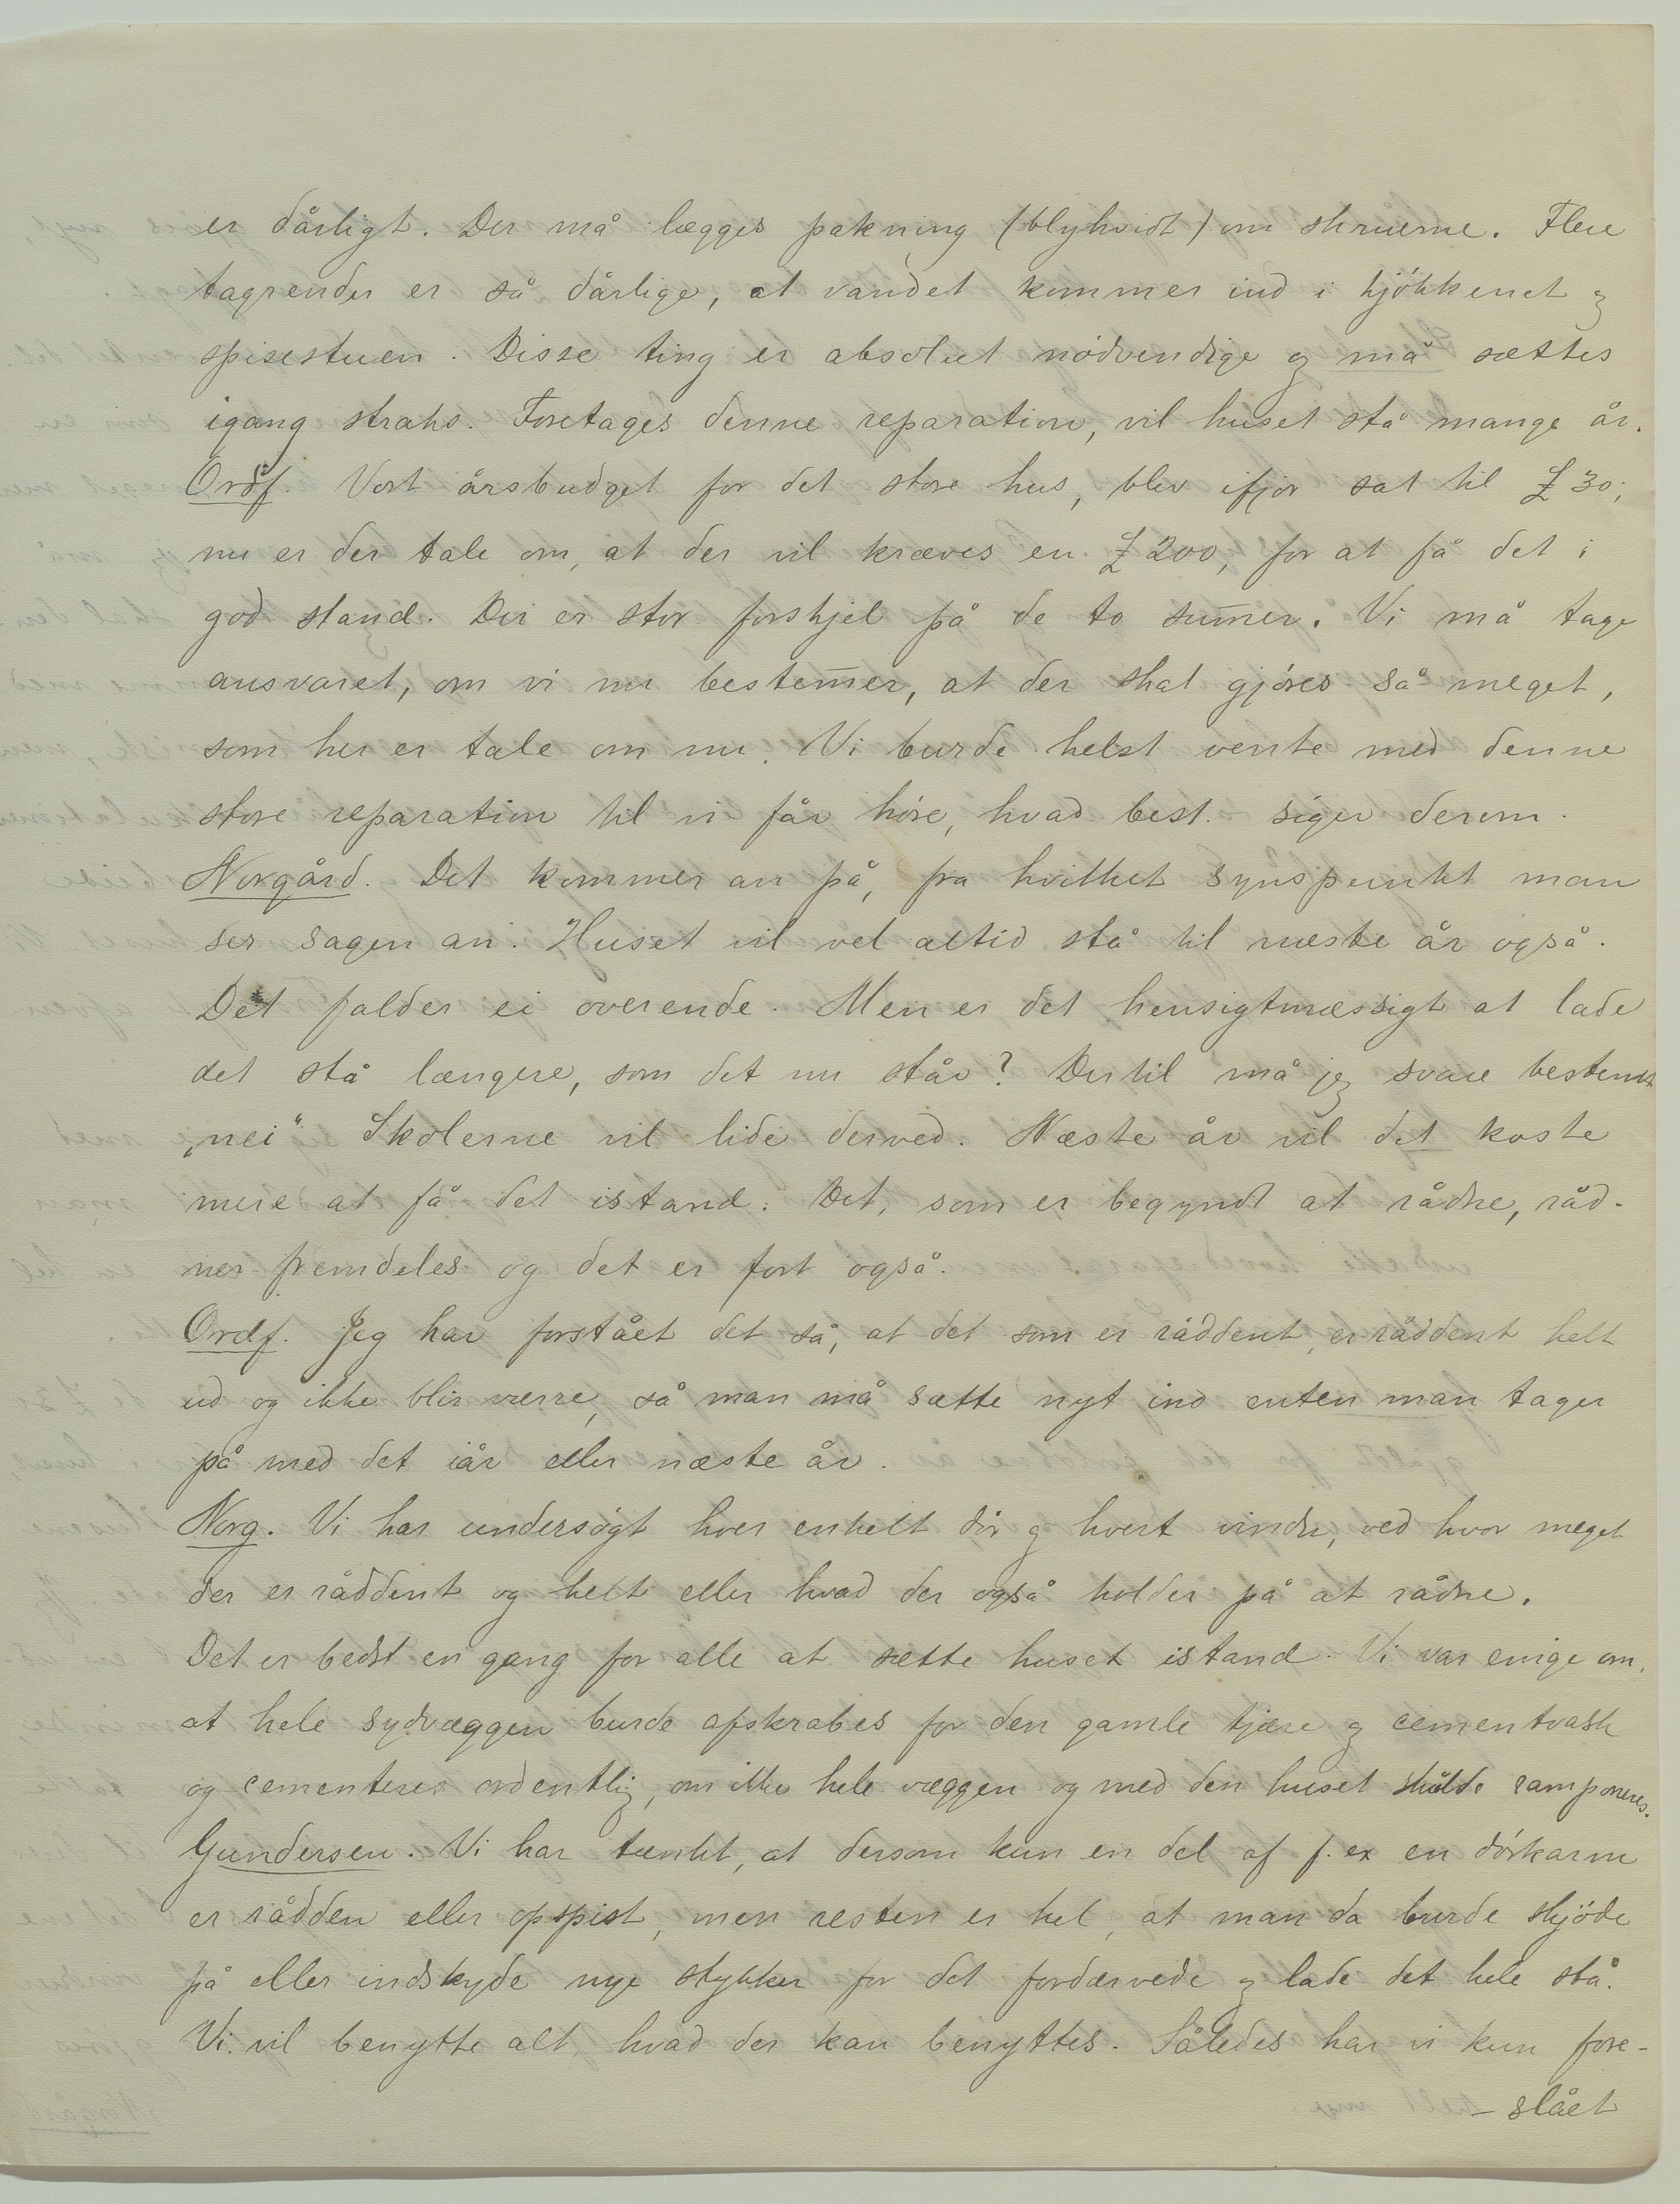 er dårligt. Der må lægges pakning (blyhvidt) om skruerne. Flere
tagrender er så dårlige, at vandet kommer ind i kjøkkenet og
spisestuen. Disse ting er absolut nødvendige og må sættes
igang straks. Foretages denne reparation, vil huset stå mange år.
Ordf. Vort årsbudget for det store hus, blev ifjor sat til £ 30;
nu er der tale om, at der vil kræves en £ 200, for at få det i
god stand. Der er stor forskjel på de to sum̅er. Vi må tage
ansvaret, om vi nu bestem̅er, at der skal gjøres så meget,
som her er tale om nu. Vi burde helst vente med denne
store reparation til vi får høre, hvad best. siger derom.
Norgård. Det kommer an på, fra hvilket synspunkt man
ser sagen an. Huset vil vel altid stå til næste år også.
Det falder ei overende. Men er det hensigtmæssigt at lade
det stå længere, som det nu står? Dertil må jeg svare bestemt
„nei“ Skolerne vil lide derved. Næste år vil det koste
mere at få det istand. Det, som er begyndt at rådne, råd-
ner fremdeles og det er fort også.
Ordf. Jeg har forstået det så, at det som er råddent, er råddent helt
ud og ikke blir værre, så man må sætte nyt ind enten man tager
på med det iår eller næste år.
Norg. Vi har undersøgt hver enkelt dør og hvert vindu, ved hvor meget
der er råddent og helt eller hvad der også holder på at rådne.
Det er bedst en gang for alle at sætte huset istand. Vi var enige om,
at hele sydvæggen burde afskrabes for den gamle tjære og cementvask
og cementeres ordentlig, om ikke hele væggen og med den huset skulde ramponeres.
Gundersen. Vi har tænkt, at dersom kun en del af f. ex en dørkarm
er rådden eller opspist, men resten er hel, at man da burde skjøde
på eller indskyde nye stykker for det fordærvede og lade det hele stå.
Vi vil benytte alt, hvad der kan benyttes. Således har vi kun fore-
– slået